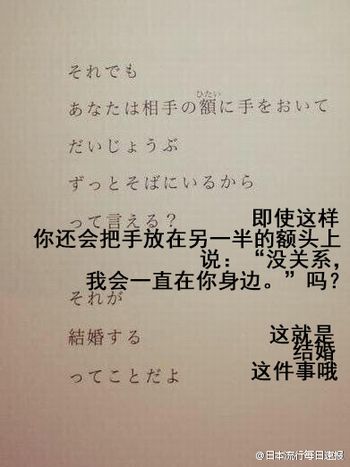 それでも
あなたは相手の額に手をおいて
ひたい
だいじょうぶ
ずっとそばにいるから
って言える？
即使这样
你还会把手放在另一半的额头上
说：“没关系，
我会一直在你身边。”吗？
それが
結婚する
ってことだよ
这就是
结婚
这件事哦
@日本流行每日速报